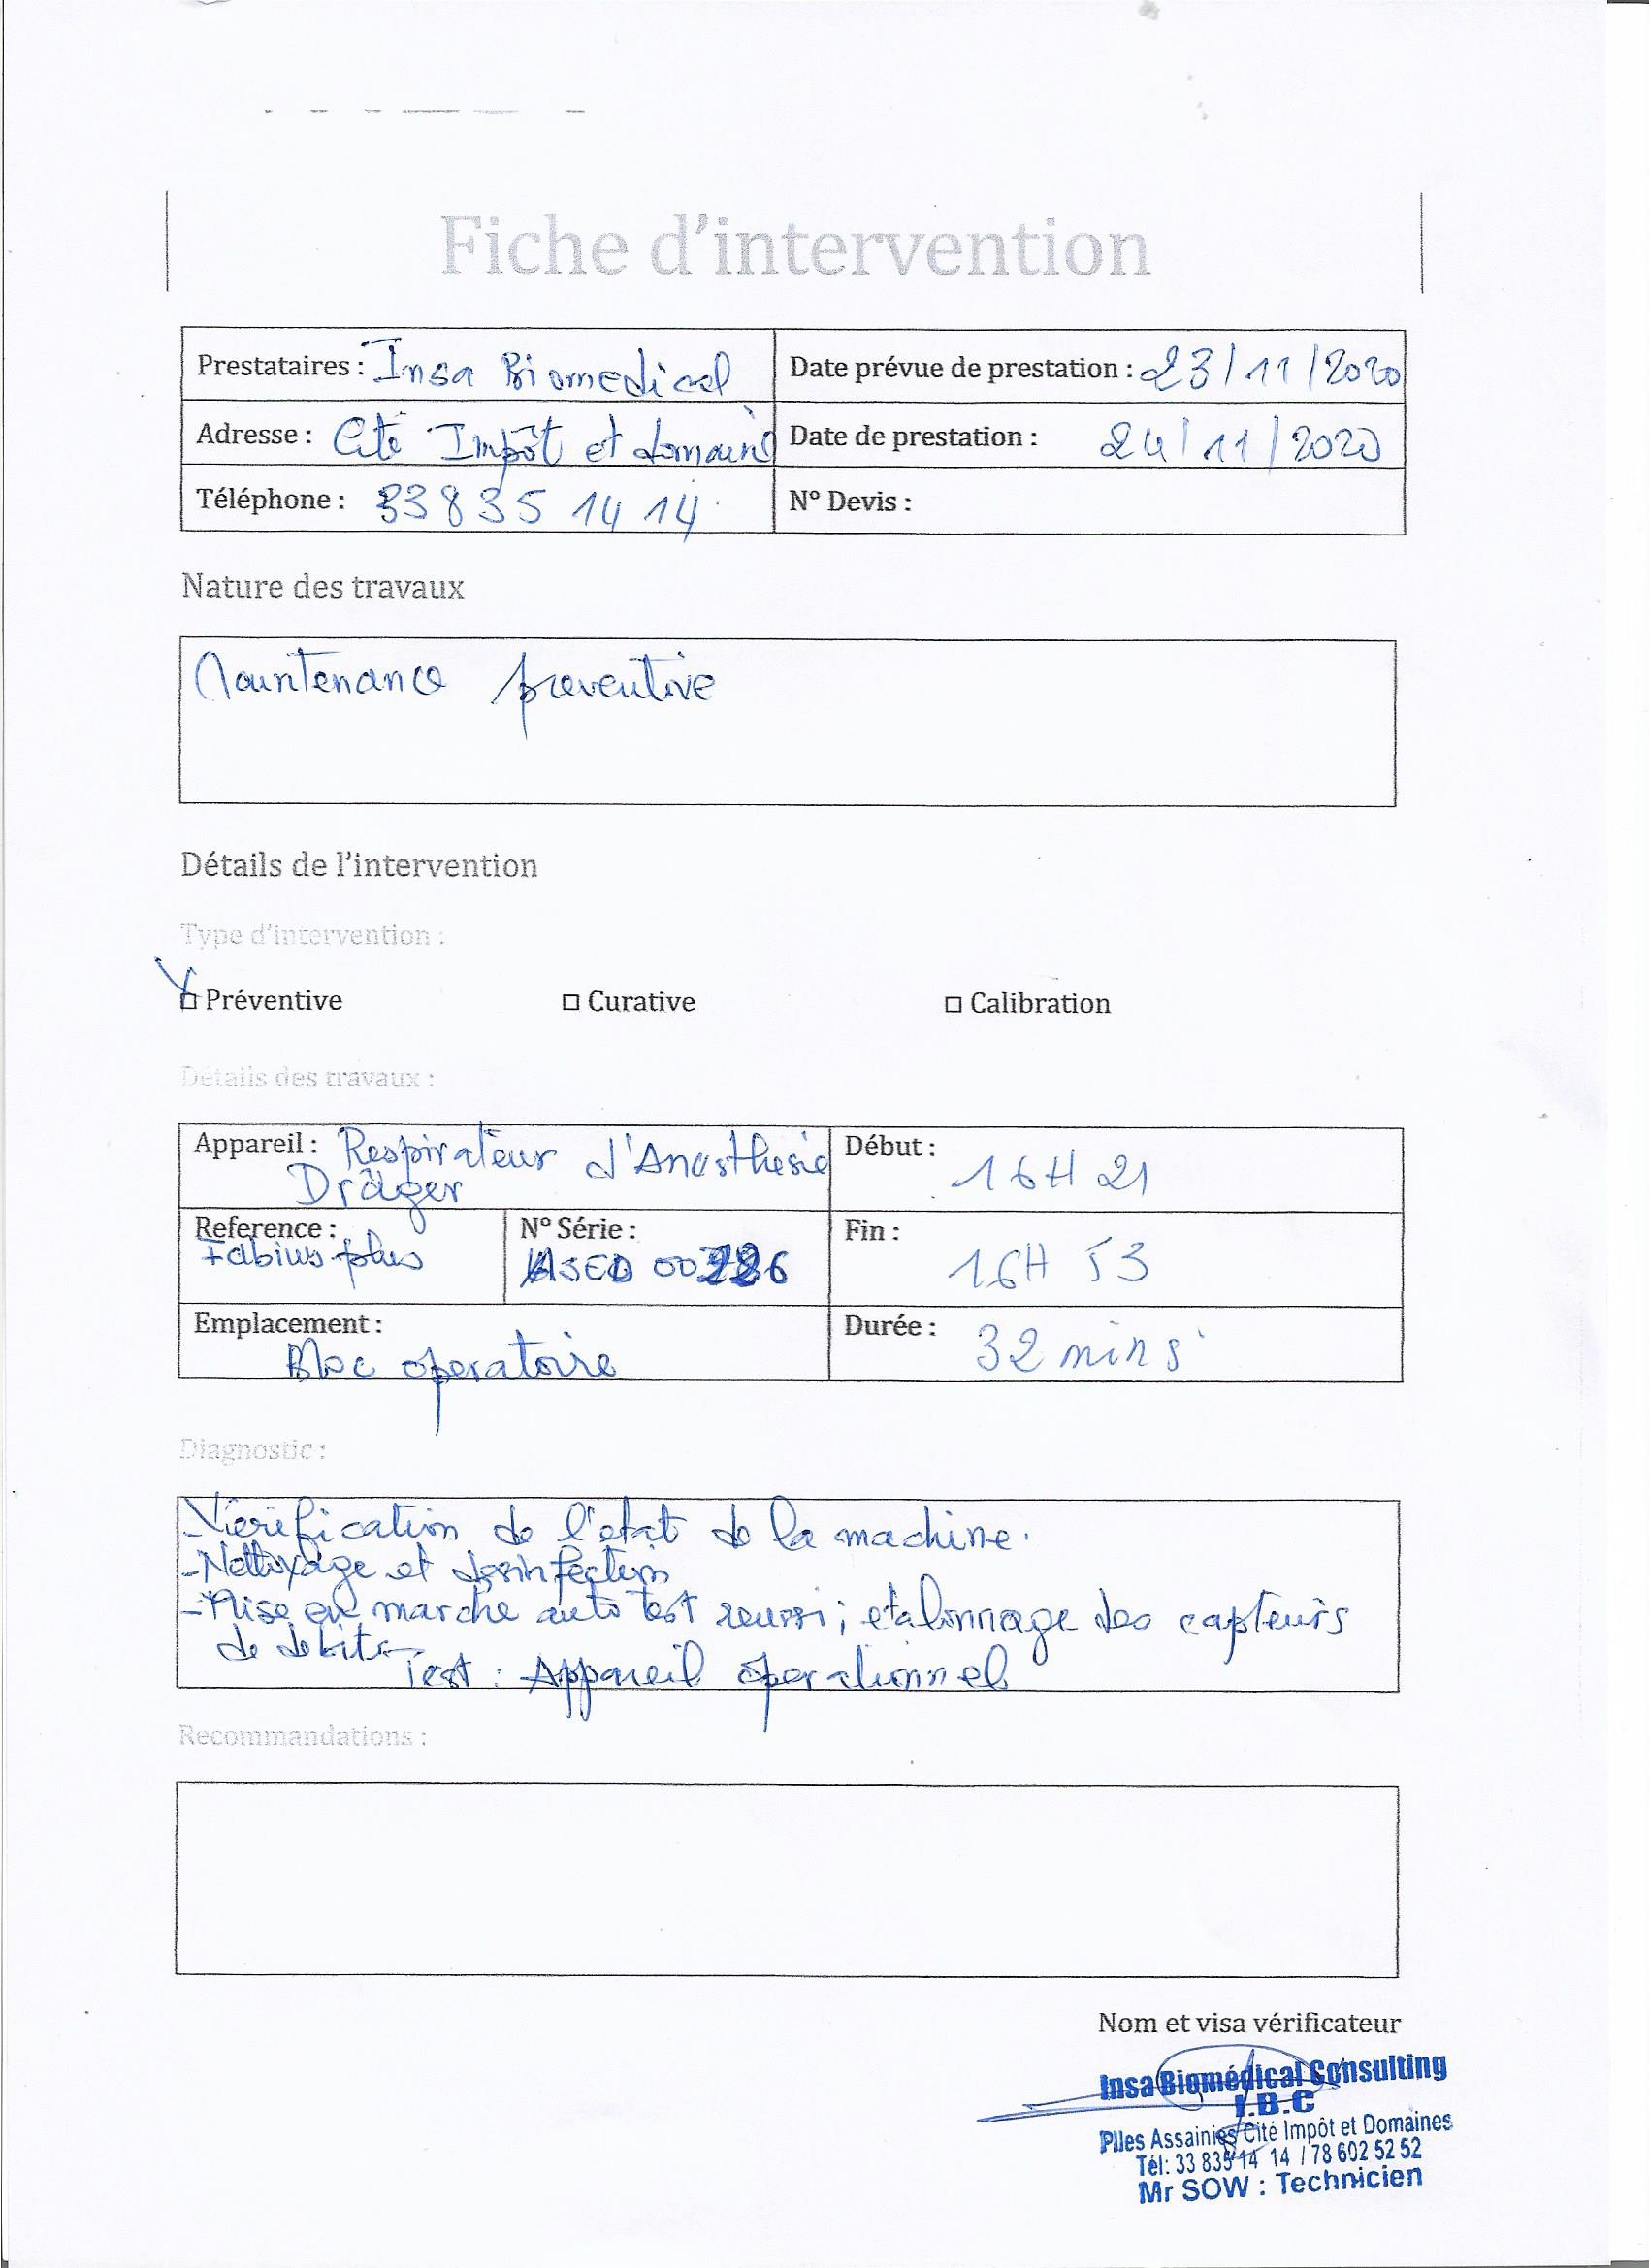 Fiche d'intervention
Prestataires : Insa Biomedical
Date prévue de prestation : 23/11/2020
Adresse : Cité Impôt et domaine
Date de prestation : 24/11/2020
Téléphone : 33 835 14 14
N° Devis :
Nature des travaux
Maintenance preventive
Détails de l'intervention
Type d'intervention :
Préventive
Curative
Calibration
Détails des travaux :
Appareil : Respirateur d'Anesthesie
Dräger
Début : 16H 21
Reference :
Fabius plus
N° Série :
Fin : 16H 53
Emplacement :
Bloc operatoire
Durée : 32 mins
Diagnostic :
- Verification de l'etat de la machine.
- Nettoyage et desinfection
- Mise en marche auto test reussi ; etalonnage des capteurs
de debits
Test : Appareil operationnel
Recommandations :
Nom et visa vérificateur
Insa Biomédical Consulting
I.B.C
Plles Assainies Cité Impôt et Domaines
Tél: 33 835 14 14 / 78 602 52 52
Mr SOW : Technicien